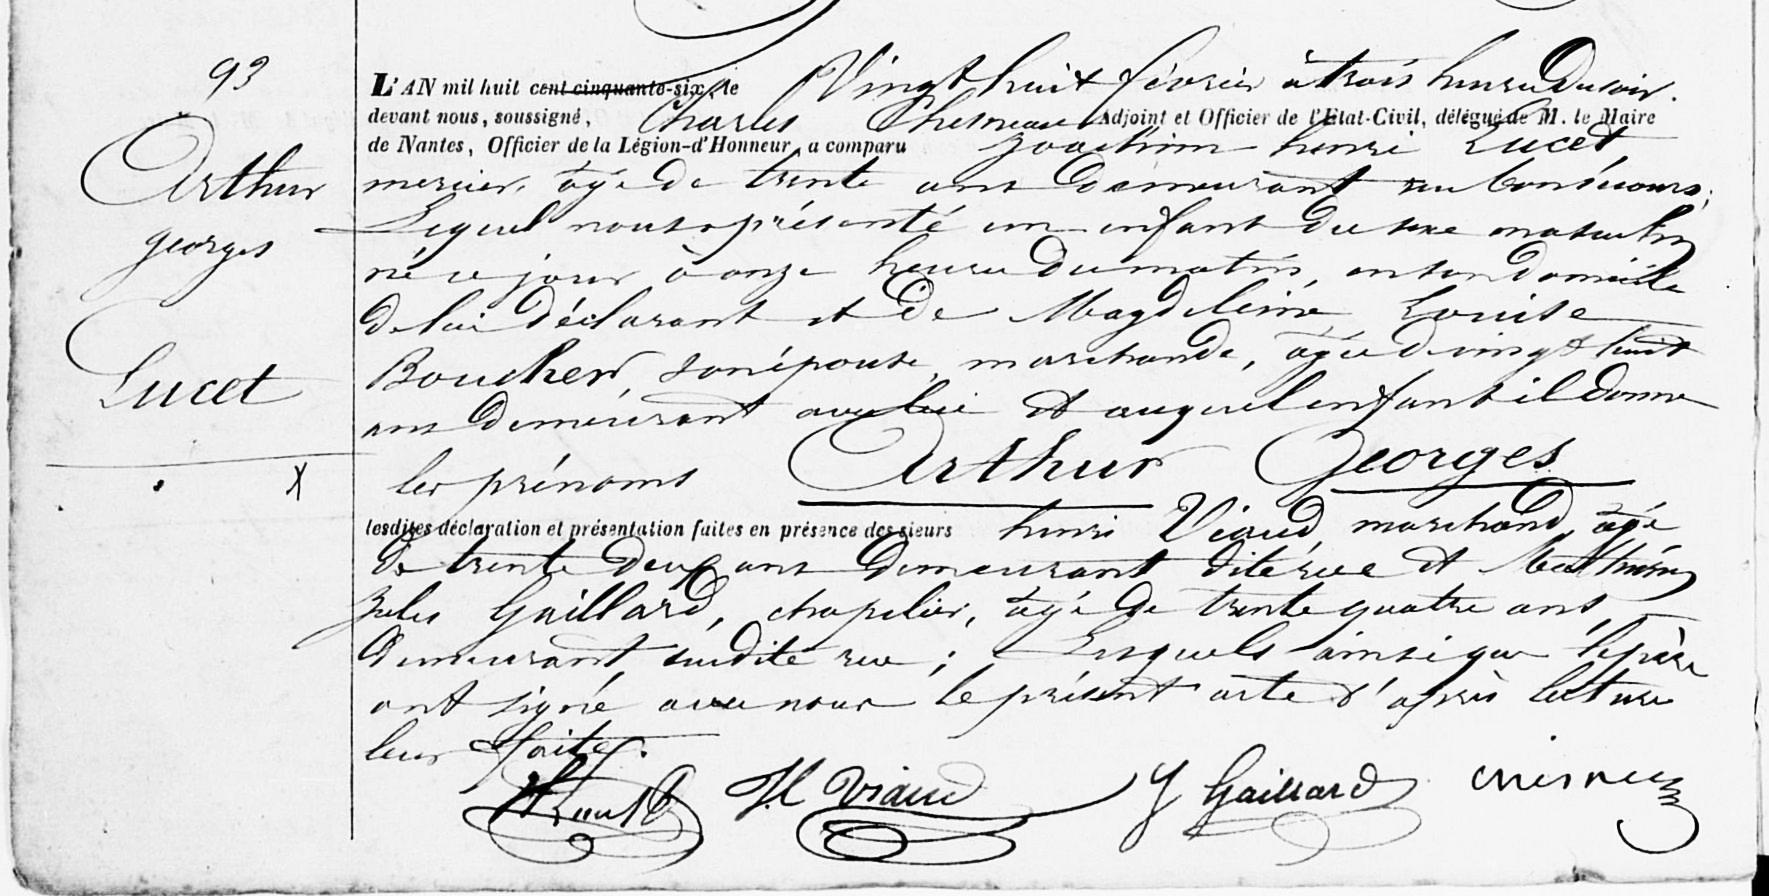 93
Arthur
georges
Lucet
L'AN mil huit cent cinquante-six, le Vingt huit février à trois heures Du soir.
devant nous, soussigné, Charles Chesneau Adjoint et Officier de l'Etat-Civil, délégué de M. le Maire
de Nantes, Officier de la Légion-d'Honneur, a comparu Joachim henri Lucet
mercier, âgé De trente ans Demeurant rue bonsecours;
Lequel nous a présenté un enfant Du sexe masculin
né ce jour à onze heures Du matin, en son Domicile
De lui Déclarant et De Magdeleine Louise
Boucher, son épouse, marchande, âgée De vingt huit
ans Demeurant avec lui et auquel enfant il Donne
les prénoms Arthur Georges
lesdites déclaration et présentation faites en présence des sieurs henri Viaud, marchand, âgé
De trente Deux ans Demeurant Dite rue et Mathurin
Jules Gaillard, chapelier, âgé De trente quatre ans,
Demeurant susdite rue; Lesquels ainsi que le père
ont signé avec nous le présent acte d'après lecture
leur faite.
H Viaud J Gaillard Chesneau